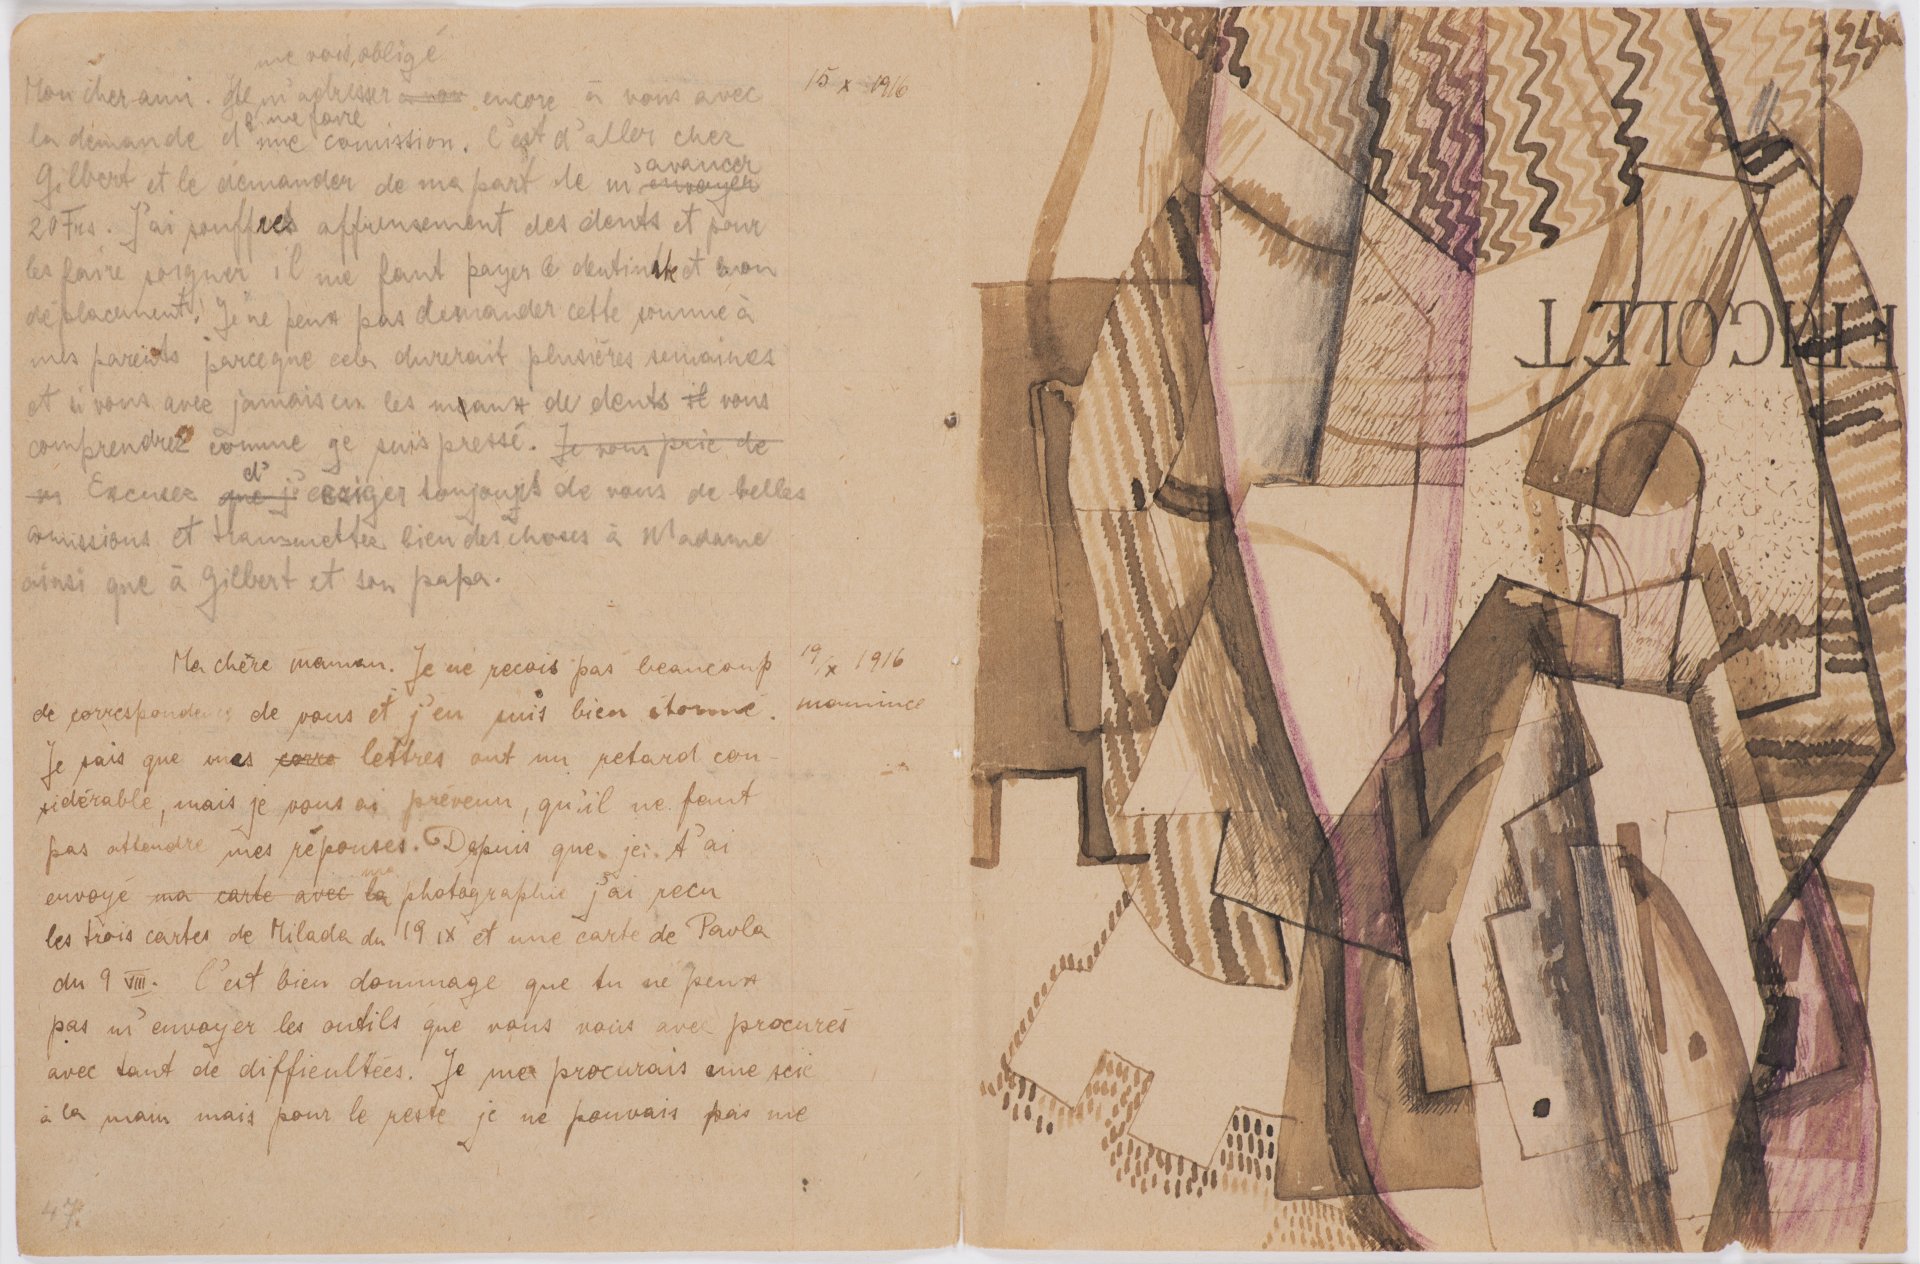 me vois, obligé
Mon cher ami. Je m'adresser à vous encore à vous avec
à me faire
la demande d'une comission. C'est d'aller chez
avancer
Gilbert et le démander de ma part de m'envoyer
20 Frs. J'ai souffres affreusement des dents et pour
les faire soigner il me faut payer le dentiste et mon
déplacement. Je ne peux pas demander cette somme à
mes parents parceque cela durerait plusières semaines
et si vous avec jamais eu les maux de dents il vous
comprendrez comme je suis pressé. Je vous prie de
d'
Excusez que j'exiger toujours de vous de telles
comissions et transmettez bien des choses à Madame
ainsi que à Gilbert et son papa.
15 x 1916
Ma chère maman. Je ne recois pas beaucoup
19/x 1916
de correspondence de vous et j'en suis bien étonné.
mamince
Je sais que mes corre lettres ont un retard con-
sidérable, mais je vous ai prévenu, qu'il ne faut
pas attendre mes réponses. Depuis que je t'ai
ma
envoyé ma carte avec la photographie j'ai recu
les trois cartes de Milada du 19 IX et une carte de Pavla
du 9 VIII. C'est bien dommage que tu ne peux
pas m'envoyer les outils que vous vous avec procurés
avec tant de difficultées. Je me procurais une scie
à la main mais pour le reste je ne pouvais pas me
47.
FINGOLET